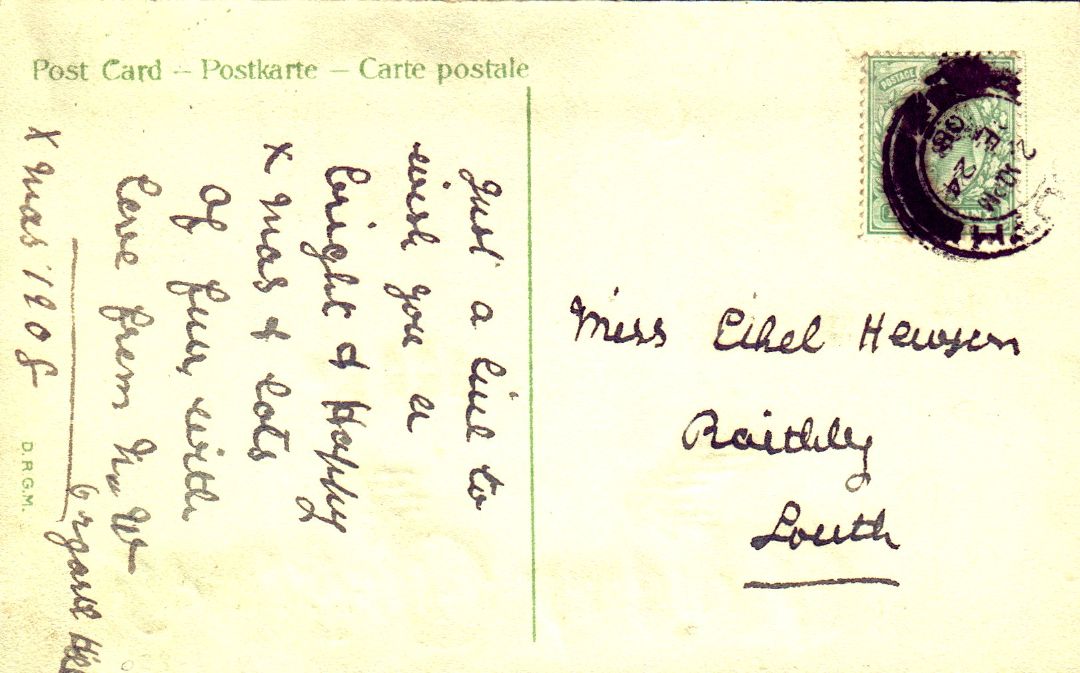 Post Card – Postkarte – Carte postale
POSTAGE
24
08
Just a line to
wish you a
bright & Happy
X mas & lots
of fun, with
love from
X mas 1908
D.R.G.M.
Miss Ethel Hewson
Raithby
Louth